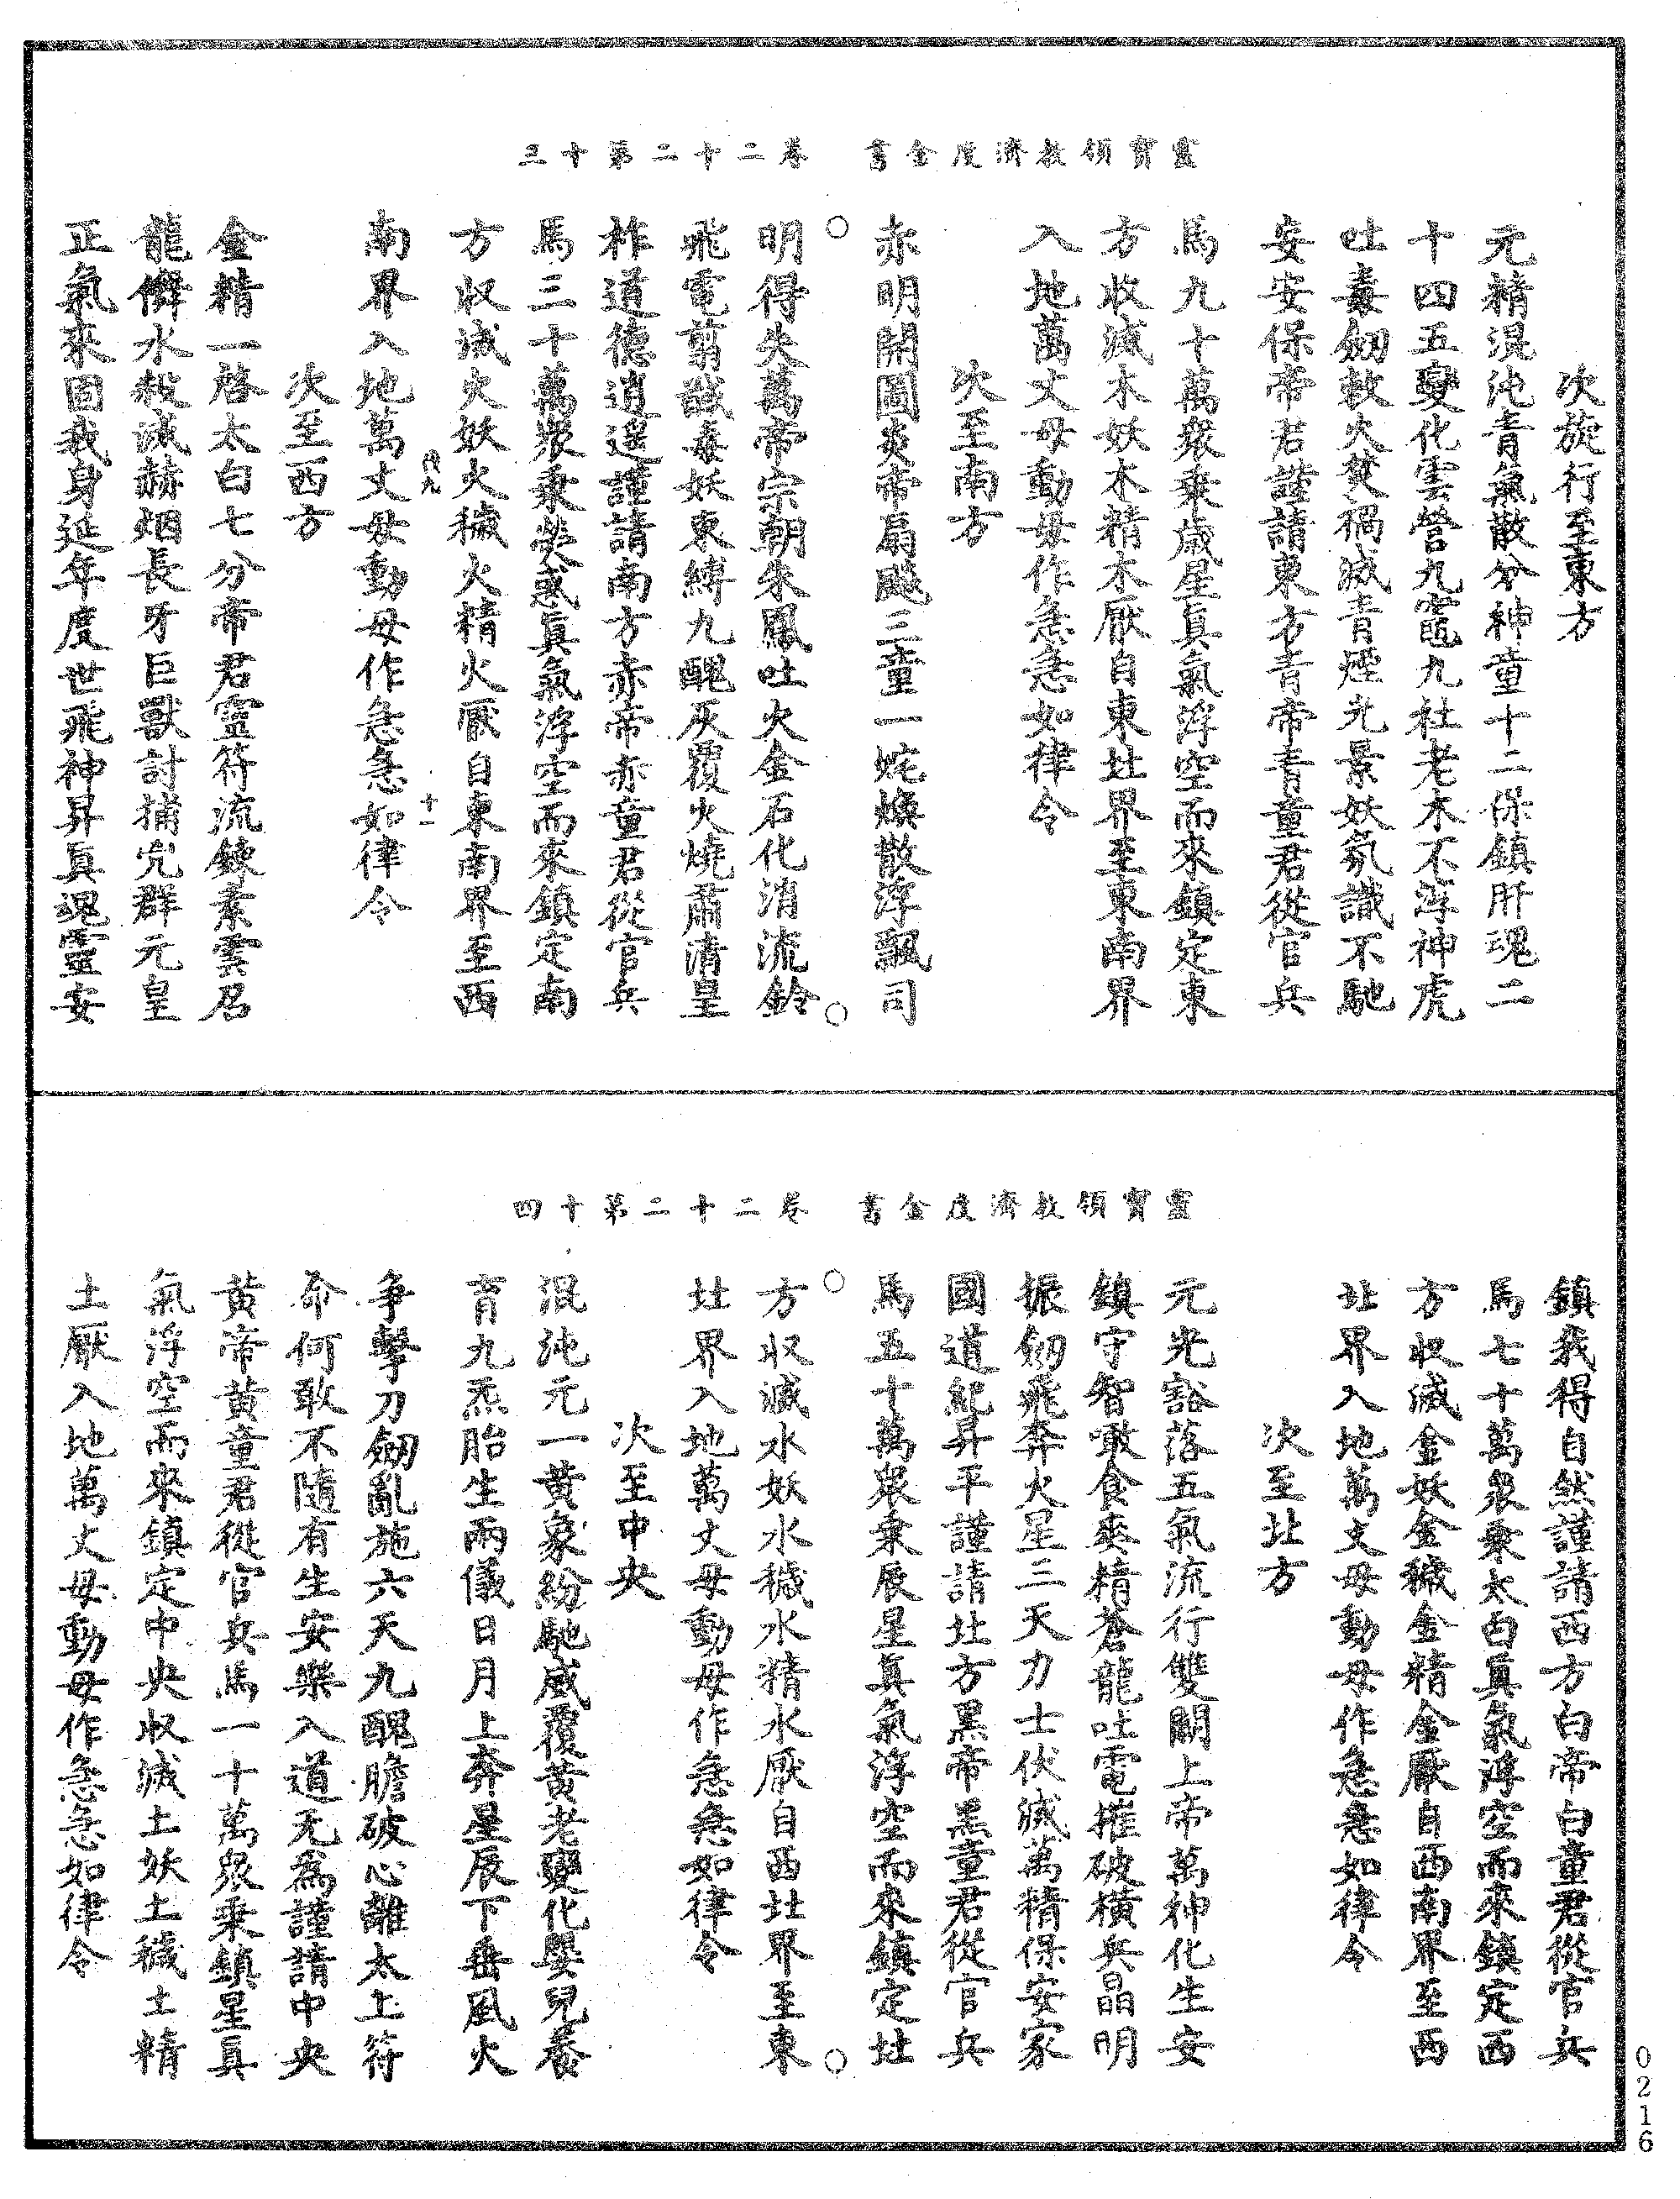 靈寶領教濟度金書　卷二十二第十三
次旋行至東方
元精混沌青氣散分神童十二保鎮肝魂二
十四五變化雲營九竈九社老木不浮神虎
吐毒劒敕火焚禍滅青煙光景妖氛識不馳
安安保帝君謹請東方青帝青童君從官兵
馬九十萬衆乗歲星真氣浮空而來鎮定東
方收滅木妖木精木厭自東北界至東南界
入地萬丈毋動毋作急急如律令
次至南方
赤明開圖炎帝扇飈三童一炨煥散浮飄司
明得失萬帝宗朝朱鳳吐火金石化消流鈴
飛電翦馘毒妖東縛九醜灰覆火燒肅清皇
祚道德逍遥謹請南方赤帝赤童君從官兵
馬三十萬衆乗熒惑真氣浮空而來鎮定南
方収滅火妖火穢火精火厭自東南界至西
南界入地萬丈毋動毋作急急如律令
十一
次至西方
金精一啓太白七分帝君靈符流鍊素雲召
龍僻水殺滅赫烟長牙巨獸討捕兇群元皇
正氣來固我身延年度世飛神昇真魂靈安
靈寶領教濟度金書　卷二十二第十四
鎮我得自然謹請西方白帝白童君從官兵
馬七十萬衆乗太白真氣浮空而來鎮定西
方収滅金妖金穢金精金厭自西南界至西
北界入地萬丈毋動毋作急急如律令
次至北方
元光豁落五氣流行雙關上帝萬神化生安
鎮守智噉食奕精蒼龍吐電摧破橫兵晶明
振劒飛奔火星三天力士伏滅萬精保安家
國道紀昇平謹請北方黑帝黑童君從官兵
馬五十萬衆乗辰星真氣浮空而來鎮定北
方収滅水妖水穢水精水厭自西北界至東
北界入地萬丈毋動毋作急急如律令
次至中央
混沌元一黄象紛馳威覆黄老變化嬰兒養
育九炁胎生兩儀日月上奔星辰下垂風火
争擊刀劒亂施六天九醜膽破心離太上符
命何敢不隨有生安樂入道无爲謹請中央
黄帝黄童君從官兵馬一十萬衆乗鎮星真
氣浮空而來鎮定中央収滅土妖土穢土精
土厭入地萬丈毋動毋作急急如律令
0216